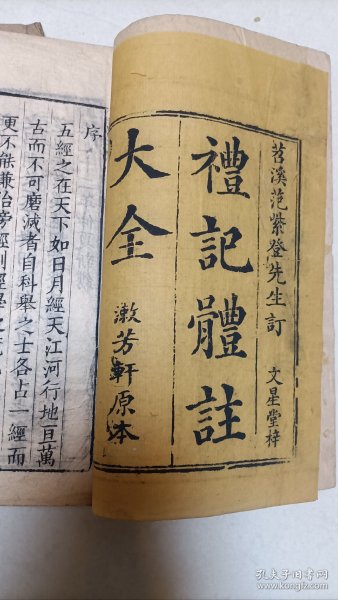 苕溪范紫登先生訂　文星堂梓
禮記體註
大全　漱芳軒原本
序
五經之在天下如日月經天江河行地亘萬
古而不可磨滅者自科舉之士各占一經而
更不能兼治旁經則經學之
孔夫子旧书网